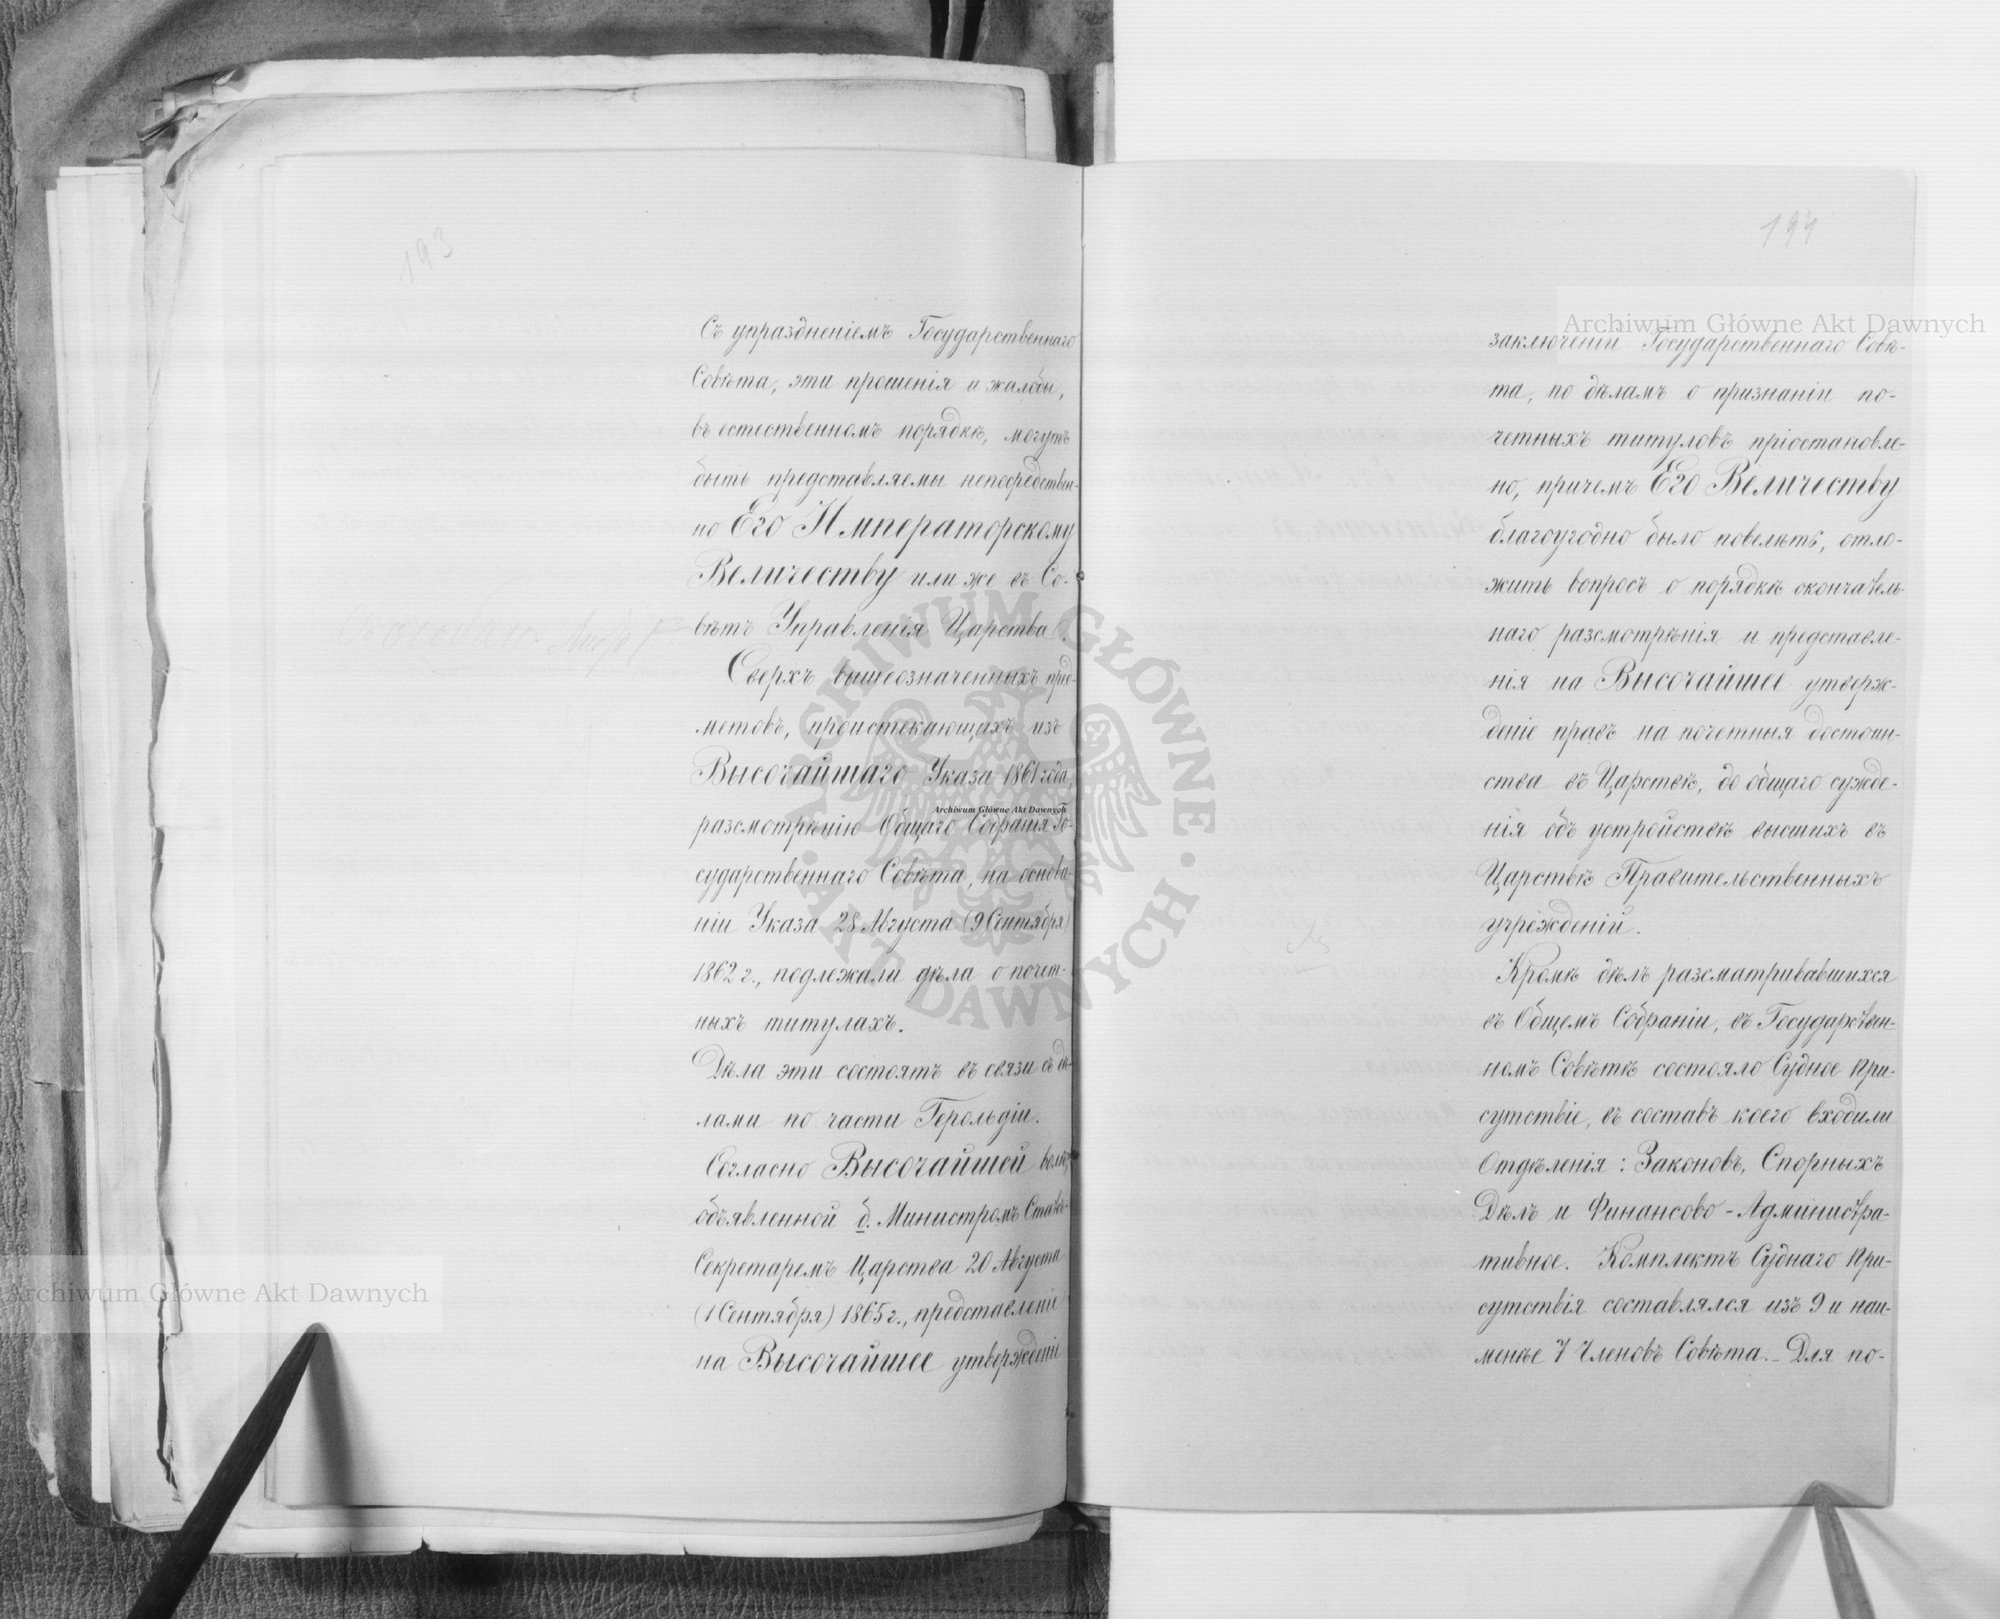 193
Съ упраздненіемъ Государственнаго
Совѣта, эти прошенія и жалобы,
въ естественномъ порядкѣ, могутъ
быть представляемы непосредствен-
но Его Императорскому
Величеству или же въ Со-
вѣтъ Управленія Царства.
Сверхъ вышеозначенныхъ пред-
метовъ, проистекающихъ изъ
Высочайшаго Указа 1861 года,
разсмотрѣнію Общаго Собранія Го-
сударственнаго Совѣта, на основа-
ніи Указа 28 Августа (9 Сентября)
1862 г., подлежали дѣла о почет-
ныхъ титулахъ.
Дѣла эти состоятъ въ связи съ дѣ-
лами по части Герольдіи.
Согласно Высочайшей волѣ,
объявленной б. Министромъ Статсъ-
Секретаремъ Царства 20 Августа
(1 Сентября) 1865 г., представленіе
на Высочайшее утвержденіе
194
заключеній Государственнаго Совѣ-
та, по дѣламъ о признаніи по-
четныхъ титуловъ пріостановле-
но, причемъ Его Величеству
благоугодно было повелѣть, отло-
жить вопросъ о порядкѣ окончатель-
наго разсмотрѣнія и представле-
нія на Высочайшее утверж-
деніе правъ на почетныя достоин-
ства въ Царствѣ, до общаго сужде-
нія объ устройствѣ высшихъ въ
Царствѣ Правительственныхъ
учрежденій.
Кромѣ дѣлъ разсматривавшихся
въ Общемъ Собраніи, въ Государствен-
номъ Совѣтѣ состояло Судное При-
сутствіе, въ составъ коего входили
Отдѣленія: Законовъ, Спорныхъ
Дѣлъ и Финансово-Администра-
тивное. Комплектъ Суднаго При-
сутствія составлялся изъ 9 и наи-
менѣе 7 Членовъ Совѣта. - Для по-
Archiwum Główne Akt Dawnych
Archiwum Główne Akt Dawnych
Archiwum Główne Akt Dawnych
ARCHIWUM GŁÓWNE · AKT DAWNYCH ·